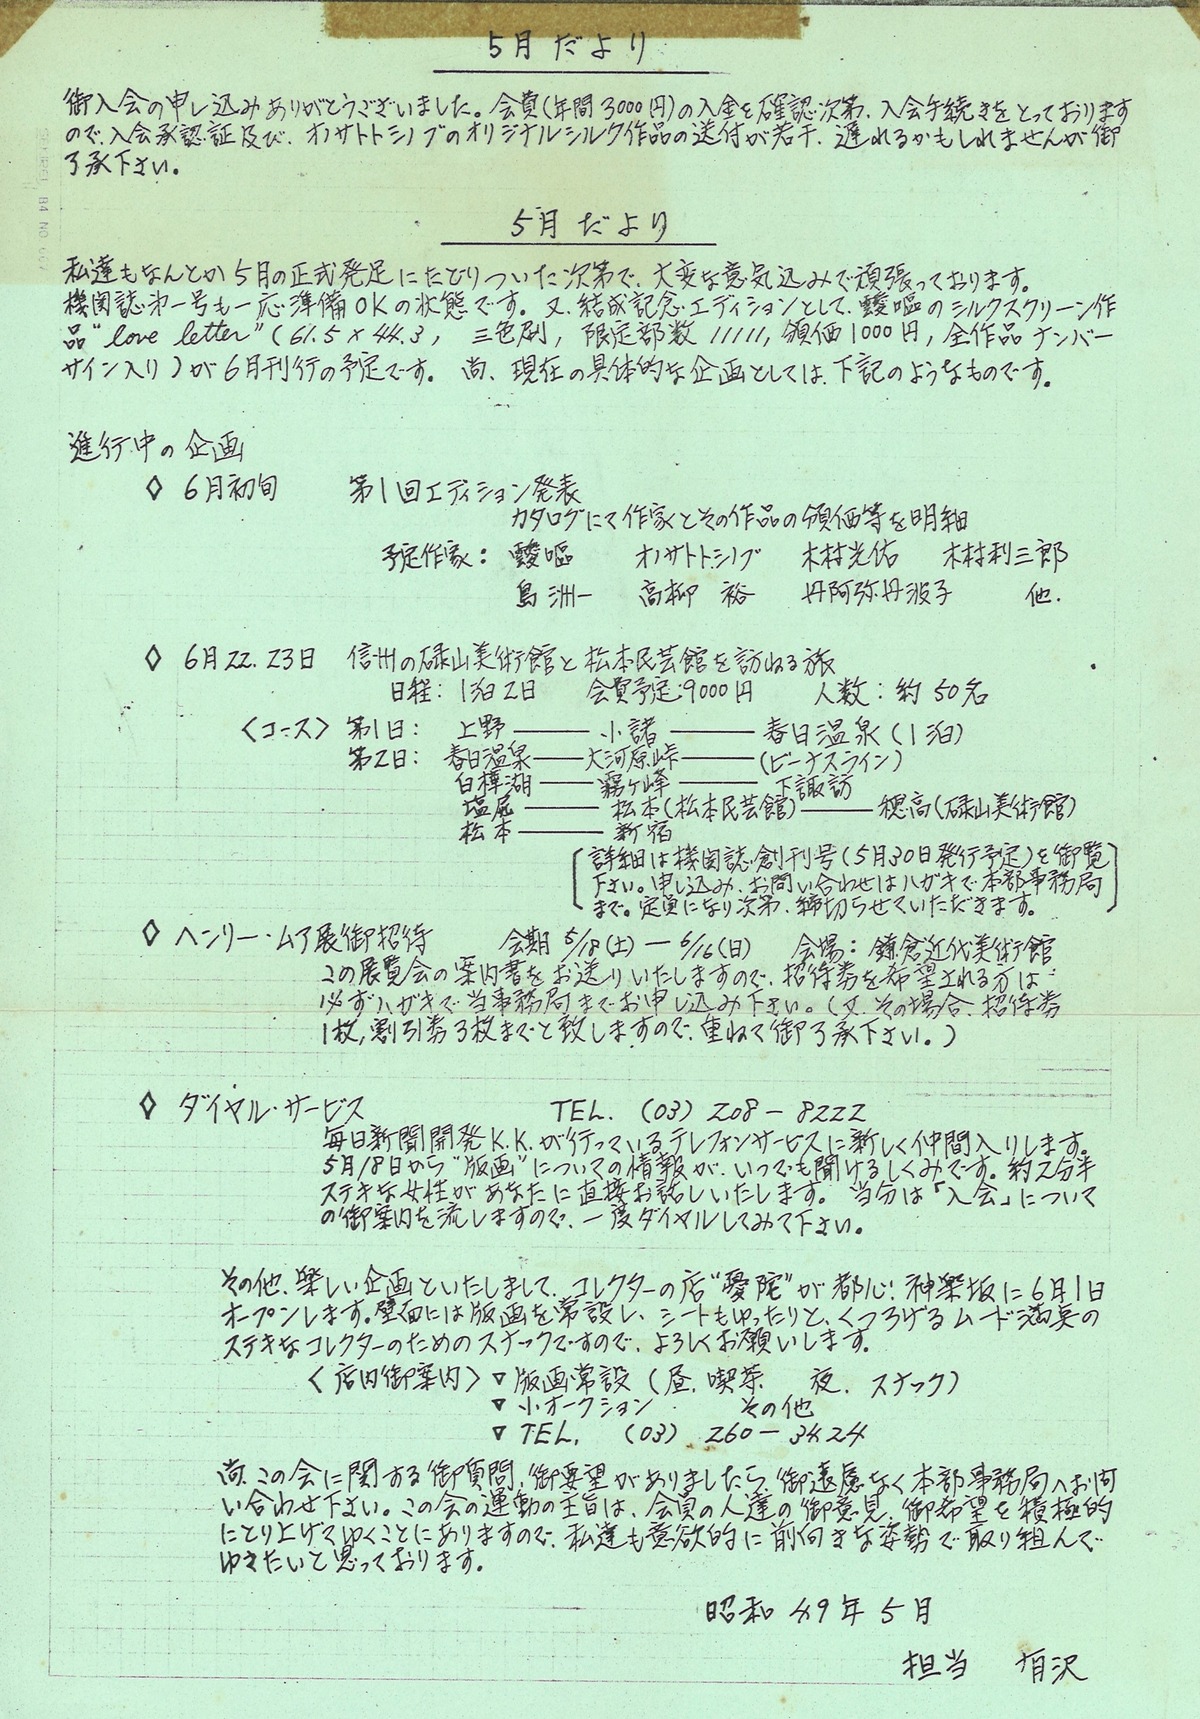 5月だより
御入会の申し込みありがとうございました。会費(年間3000円)の入金を確認次第、入会手続きをとっております
ので、入会承認証及び、オノサトトシノブのオリジナルシルク作品の送付が若干、遅れるかもしれませんが御
了承下さい。
5月だより
私達もなんとか5月の正式発足にたどりついた次第で、大変な意気込みで頑張っております。
機関誌才一号も一応準備OKの状態です。又、結成記念エディションとして、靉嘔のシルクスクリーン作
品"love letter"(61.5×44.3, 三色刷, 限定部数11111, 領価1000円, 全作品ナンバー
サイン入り)が6月刊行の予定です。 尚、現在の具体的な企画としては、下記のようなものです。
進行中の企画
◇ 6月初旬 第1回エディション発表
カタログにて作家とその作品の領価等を明細
予定作家: 靉嘔 オノサトトシノブ 木村光佑 木村利三郎
島洲一 高柳裕 丹阿弥丹波子 他.
◇ 6月22.23日 信州の碌山美術館と松本民芸館を訪ねる旅
日程: 1泊2日 会費予定:9000円 人数:約50名
〈コース〉 第1日: 上野――小諸――春日温泉(1泊)
第2日: 春日温泉――大河原峠――(ビーナスライン)
白樺湖――霧ヶ峰――下諏訪
塩尻――松本(松本民芸館)――穂高(碌山美術館)
松本――新宿
[詳細は機関誌創刊号(5月30日発行予定)を御覧
下さい。申し込み、お問い合わせはハガキで本部事務局
まで。定員になり次第、締切らせていただきます。]
◇ ヘンリー・ムア展御招待 会期 5/18(土)―6/16(日) 会場: 鎌倉近代美術館
この展覧会の案内書をお送りいたしますので、招待券を希望される方は
必ずハガキで当事務局までお申し込み下さい。(又、その場合、招待券
1枚,割引券3枚までと致しますので、重ねて御了承下さい。)
◇ ダイヤル・サービス TEL. (03) 208-8222
毎日新聞開発K.K.が行っているテレフォンサービスに新しく仲間入りします。
5月18日から"版画"についての情報が、いつでも聞けるしくみです。約2分半
ステキな女性があなたに直接お話しいたします。 当分は「入会」について
の御案内を流しますので、一度ダイヤルしてみて下さい。
その他、楽しい企画といたしまして、コレクターの店"憂陀"が都心!神楽坂に6月1日
オープンします。壁面には版画を常設し、シートもゆったりと、くつろげるムード満点の
ステキなコレクターのためのスナックですので、よろしくお願いします。
〈店内御案内〉 ▽ 版画常設 (昼.喫茶 夜.スナック)
▽ 小オークション その他
▽ TEL. (03) 260-3424
尚、この会に関する御質問、御要望がありましたら、御遠慮なく本部事務局へお問
い合わせ下さい。この会の運動の主旨は、会員の人達の御意見、御希望を積極的
にとり上げてゆくことにありますので、私達も意欲的に前向きな姿勢で取り組んで
ゆきたいと思っております。
昭和49年5月
担当 有沢